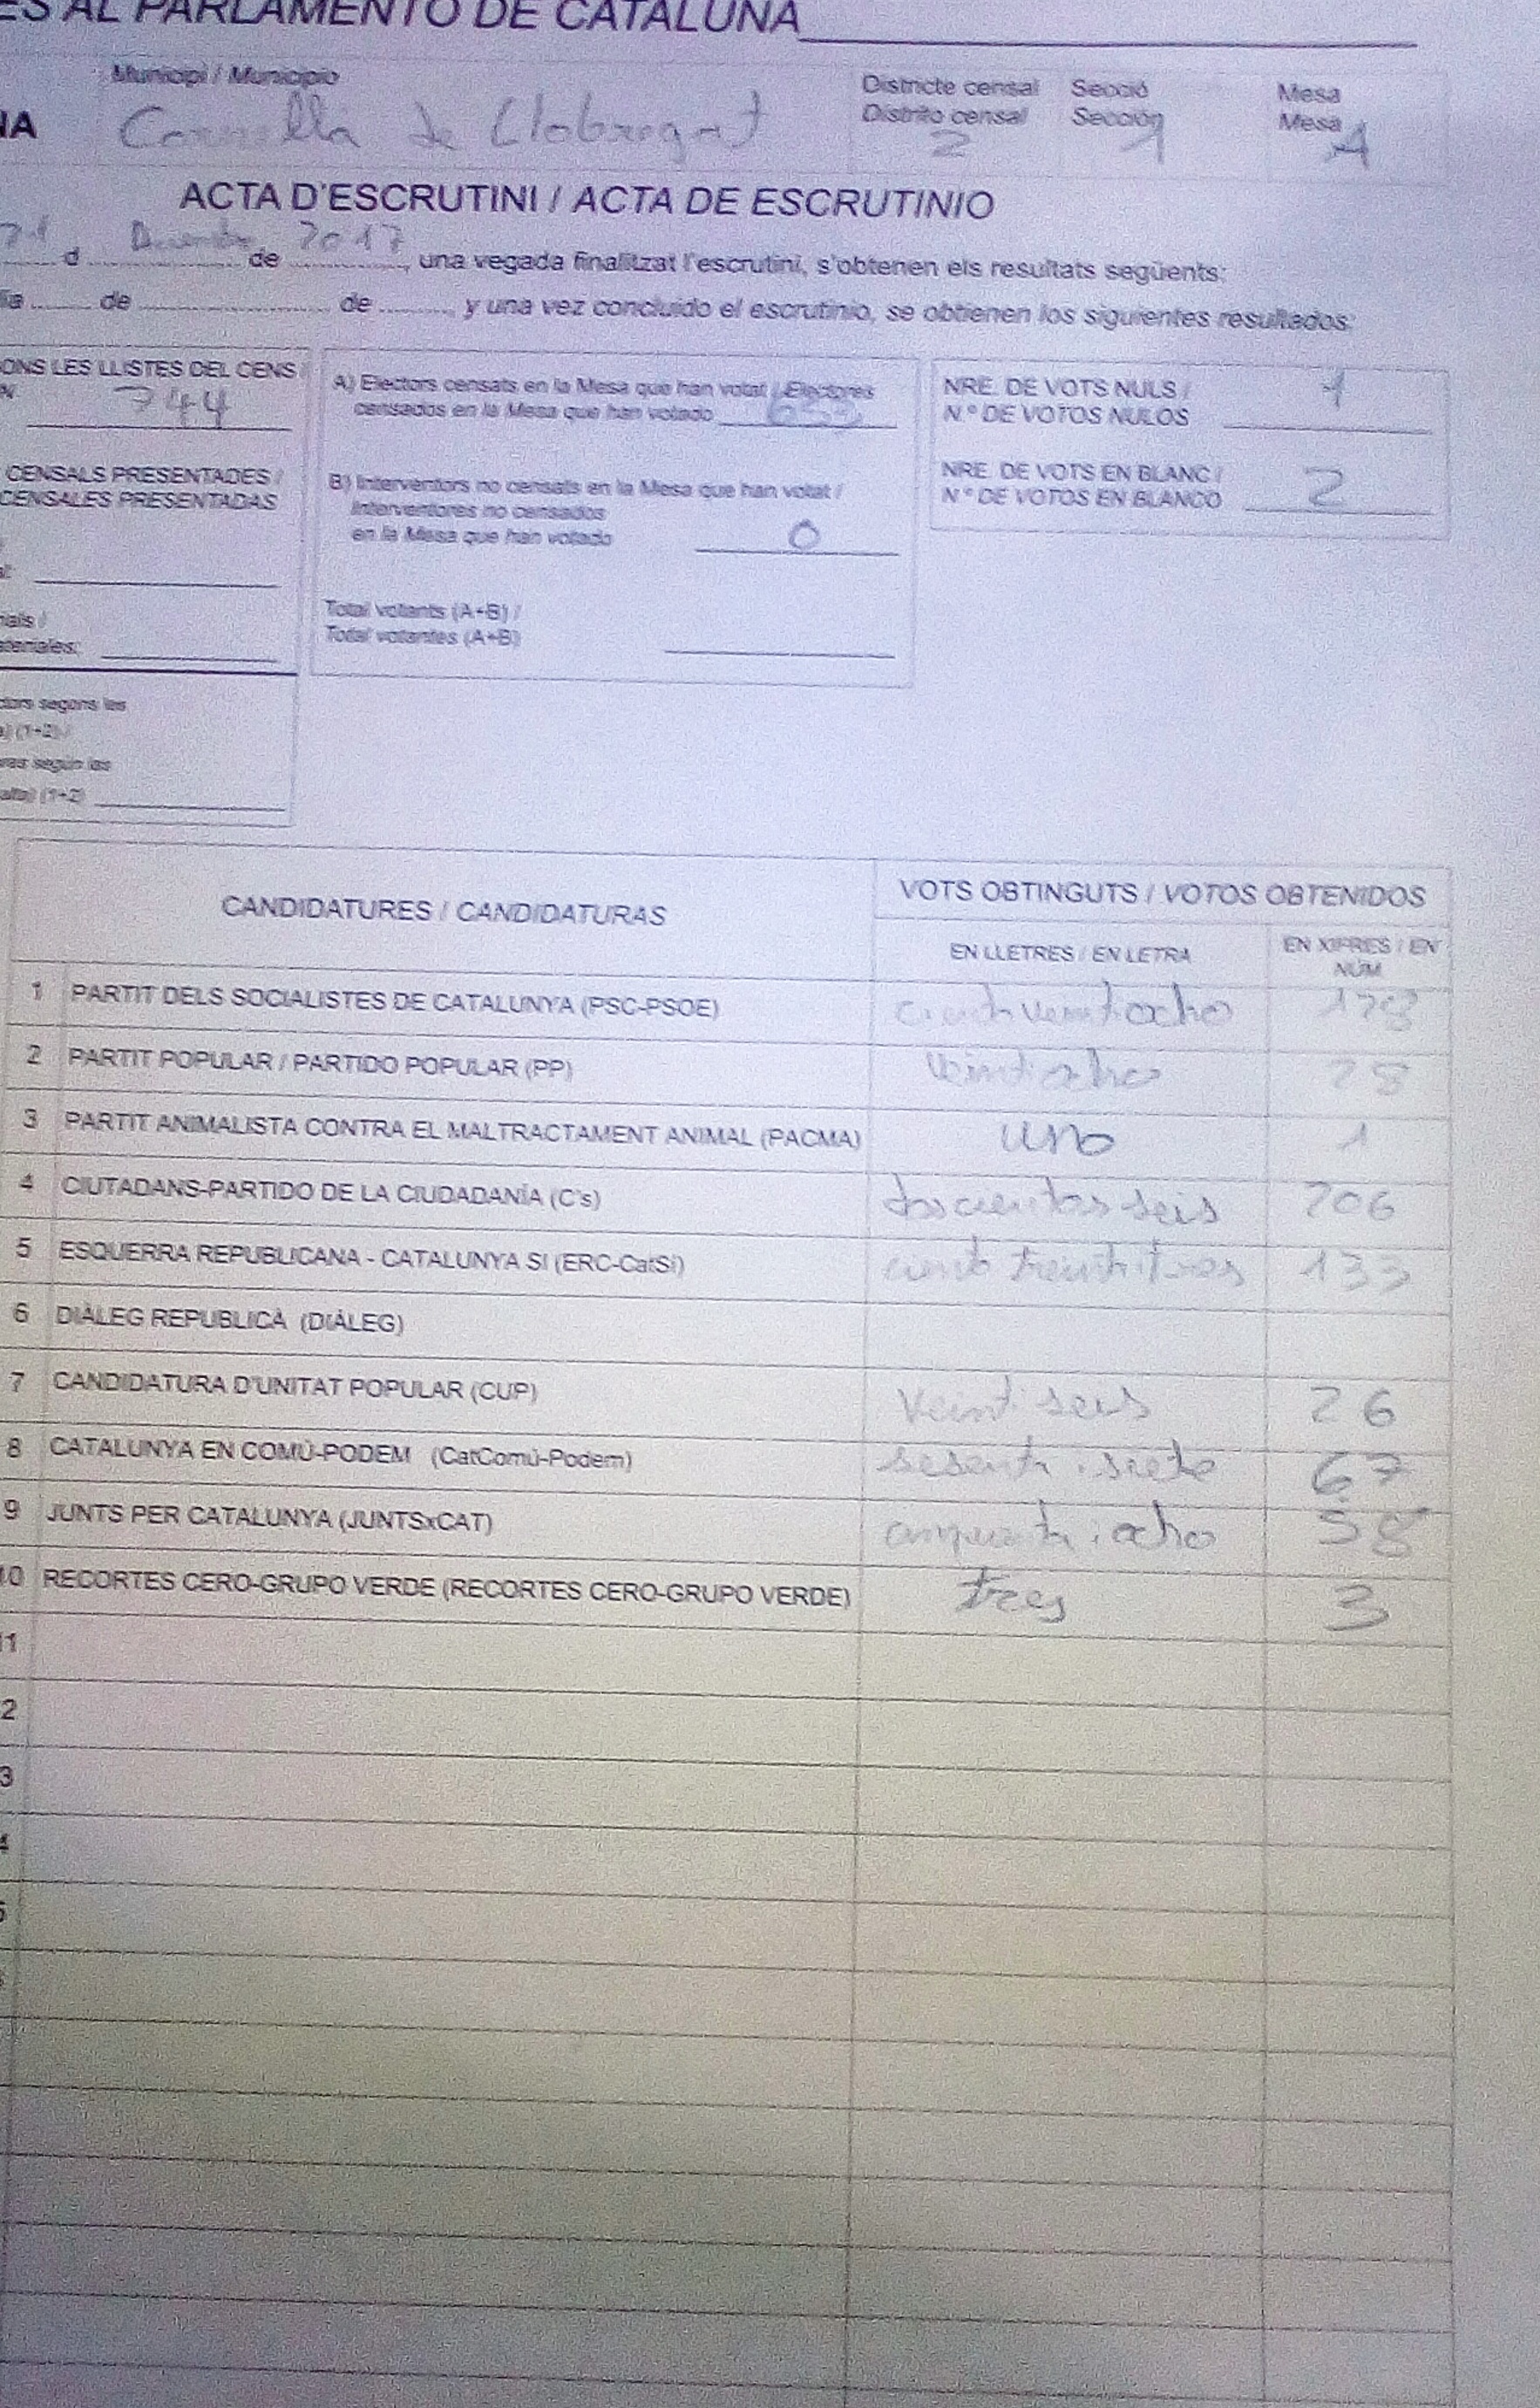 ES AL PARLAMENTO DE CATALUÑA
Municipi / Municipio
Districte censal Secció Mesa
Distrito censal Sección Mesa
NA Cornella de Llobregat 2 1 A
ACTA D'ESCRUTINI / ACTA DE ESCRUTINIO
21 d Diciembre de 2017, una vegada finalitzat l'escrutini, s'obtenen els resultats següents:
ía de de , y una vez concluido el escrutinio, se obtienen los siguientes resultados:
ONS LES LLISTES DEL CENS /
744
CENSALS PRESENTADES /
CENSALES PRESENTADAS
nals /
ctors segons les
) (1+2) /
res según las
alta) (1+2)
A) Electors censats en la Mesa que han votat / Electores
censados en la Mesa que han votado 653
B) Interventors no censats en la Mesa que han votat /
Interventores no censados
en la Mesa que han votado 0
Total votants (A+B) /
Total votantes (A+B)
NRE. DE VOTS NULS / 1
N.º DE VOTOS NULOS
NRE. DE VOTS EN BLANC / 2
N.º DE VOTOS EN BLANCO
CANDIDATURES / CANDIDATURAS
VOTS OBTINGUTS / VOTOS OBTENIDOS
EN LLETRES / EN LETRA
EN XIFRES / EN
NÚM
1 PARTIT DELS SOCIALISTES DE CATALUNYA (PSC-PSOE) 128
2 PARTIT POPULAR / PARTIDO POPULAR (PP) veintiocho 28
3 PARTIT ANIMALISTA CONTRA EL MALTRACTAMENT ANIMAL (PACMA) uno 1
4 CIUTADANS-PARTIDO DE LA CIUDADANÍA (C's) doscientos seis 206
5 ESQUERRA REPUBLICANA - CATALUNYA SI (ERC-CatSí) 133
6 DIÀLEG REPUBLICÀ (DIÀLEG)
7 CANDIDATURA D'UNITAT POPULAR (CUP) veinti seis 26
8 CATALUNYA EN COMÚ-PODEM (CatComú-Podem) sesenta i siete 67
9 JUNTS PER CATALUNYA (JUNTSxCAT) cinquenta i ocho 58
10 RECORTES CERO-GRUPO VERDE (RECORTES CERO-GRUPO VERDE) tres 3
11
2
3
4
5